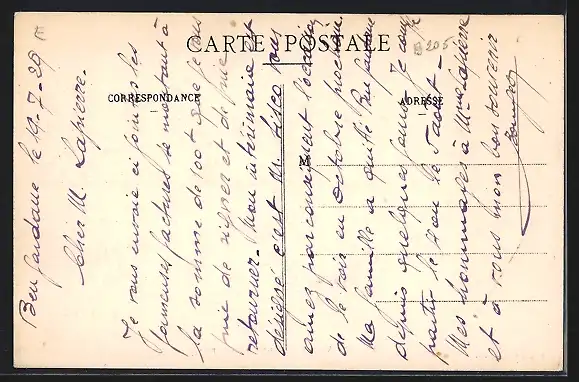 CARTE POSTALE
CORRESPONDANCE
ADRESSE
M
Ben Gardane le 19-7-29
Cher M. Lapierre.
Je vous envoie ci joint les
fameuses factures se montant à
la somme de 100f que je vous
prie de signer et de me
retourner. Mon intérimaire est
désigné c'est M. vous
aurez par conséquent l'occasion
de le voir en octobre prochain.
Ma famille a quitté Ben Gardane
depuis quelques jours. Je compte
partir le 1er ou le 5 août -
Mes hommages à Mme Lapierre
et à vous mon bon souvenir
B 205